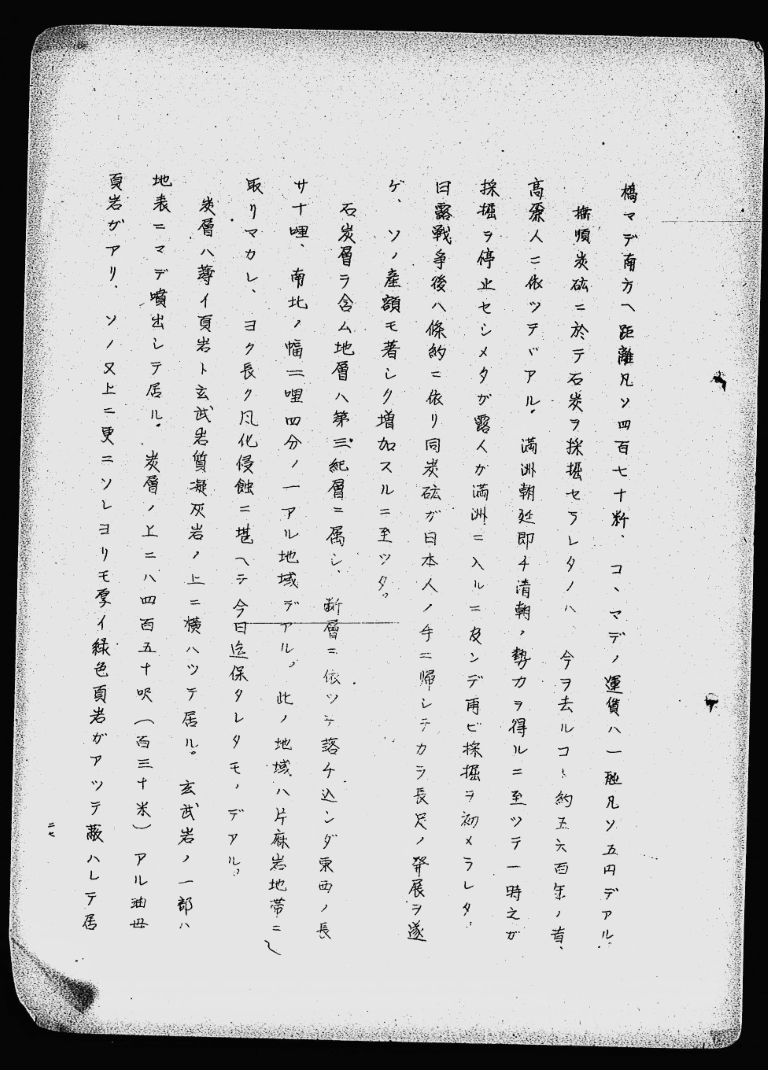 橋マデ南方ヘ距離凡ソ四百七十粁、コヽマデノ運賃ハ一瓲凡ソ五円デアル、
撫順炭砿ニ於テ石炭ヲ採掘セラレタノハ今ヲ去ルコト約五六百年ノ昔、
高原人ニ依ツテヾアル。満洲朝廷即チ清朝ノ勢力ヲ得ルニ至ツテ一時之ガ
採掘ヲ停止セシメタガ露人ガ満洲ニ入ルニ及ンデ再ビ採掘ヲ初メラレタ、
日露戦争後ハ條約ニ依リ同炭砿ガ日本人ノ手ニ帰シテカラ長足ノ発展ヲ遂
ゲ、ソノ産額モ著シク増加スルニ至ツタ。
石炭層ヲ含ム地層ハ第三紀層ニ属シ、断層ニ依ツテ落チ込ンダ東西ノ長
サ十哩、南北ノ幅二哩四分ノ一アル地域デアル。此ノ地域ハ片麻岩地帯ニ
取リマカレ、ヨク長ク風化侵蝕ニ堪ヘテ今日迄保タレタモノデアル、
炭層ハ薄イ頁岩ト玄武岩質凝灰岩ノ上ニ横ハツテ居ル。玄武岩ノ一部ハ
地表ニマデ噴出シテ居ル。炭層ノ上ニハ四百五十呎(百三十米)アル油母
頁岩ガアリ、ソノ又上ニ更ニソレヨリモ厚イ緑色頁岩ガアツテ蔽ハレテ居
二七